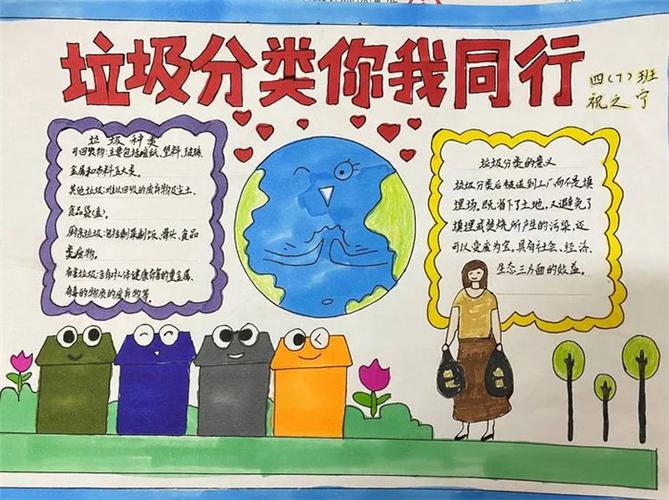 垃圾分类你我同行
四(7)班
祝之宁
垃圾种类
可回收物:主要包括废纸、塑料、玻璃、
金属和布料五大类。
其他垃圾:难以回收的废弃物及尘土、
食品袋(盒)。
厨余垃圾:包括剩菜剩饭、骨头、食品
类废物。
有害垃圾:含有对人体健康有害的重金属、
有毒的物质的废弃物等。
垃圾分类的意义
垃圾分类后被送到工厂而不是填
埋场,既省下了土地,又避免了
填埋或焚烧所产生的污染,还
可以变废为宝。具有社会、经济、
生态三方面的效益。